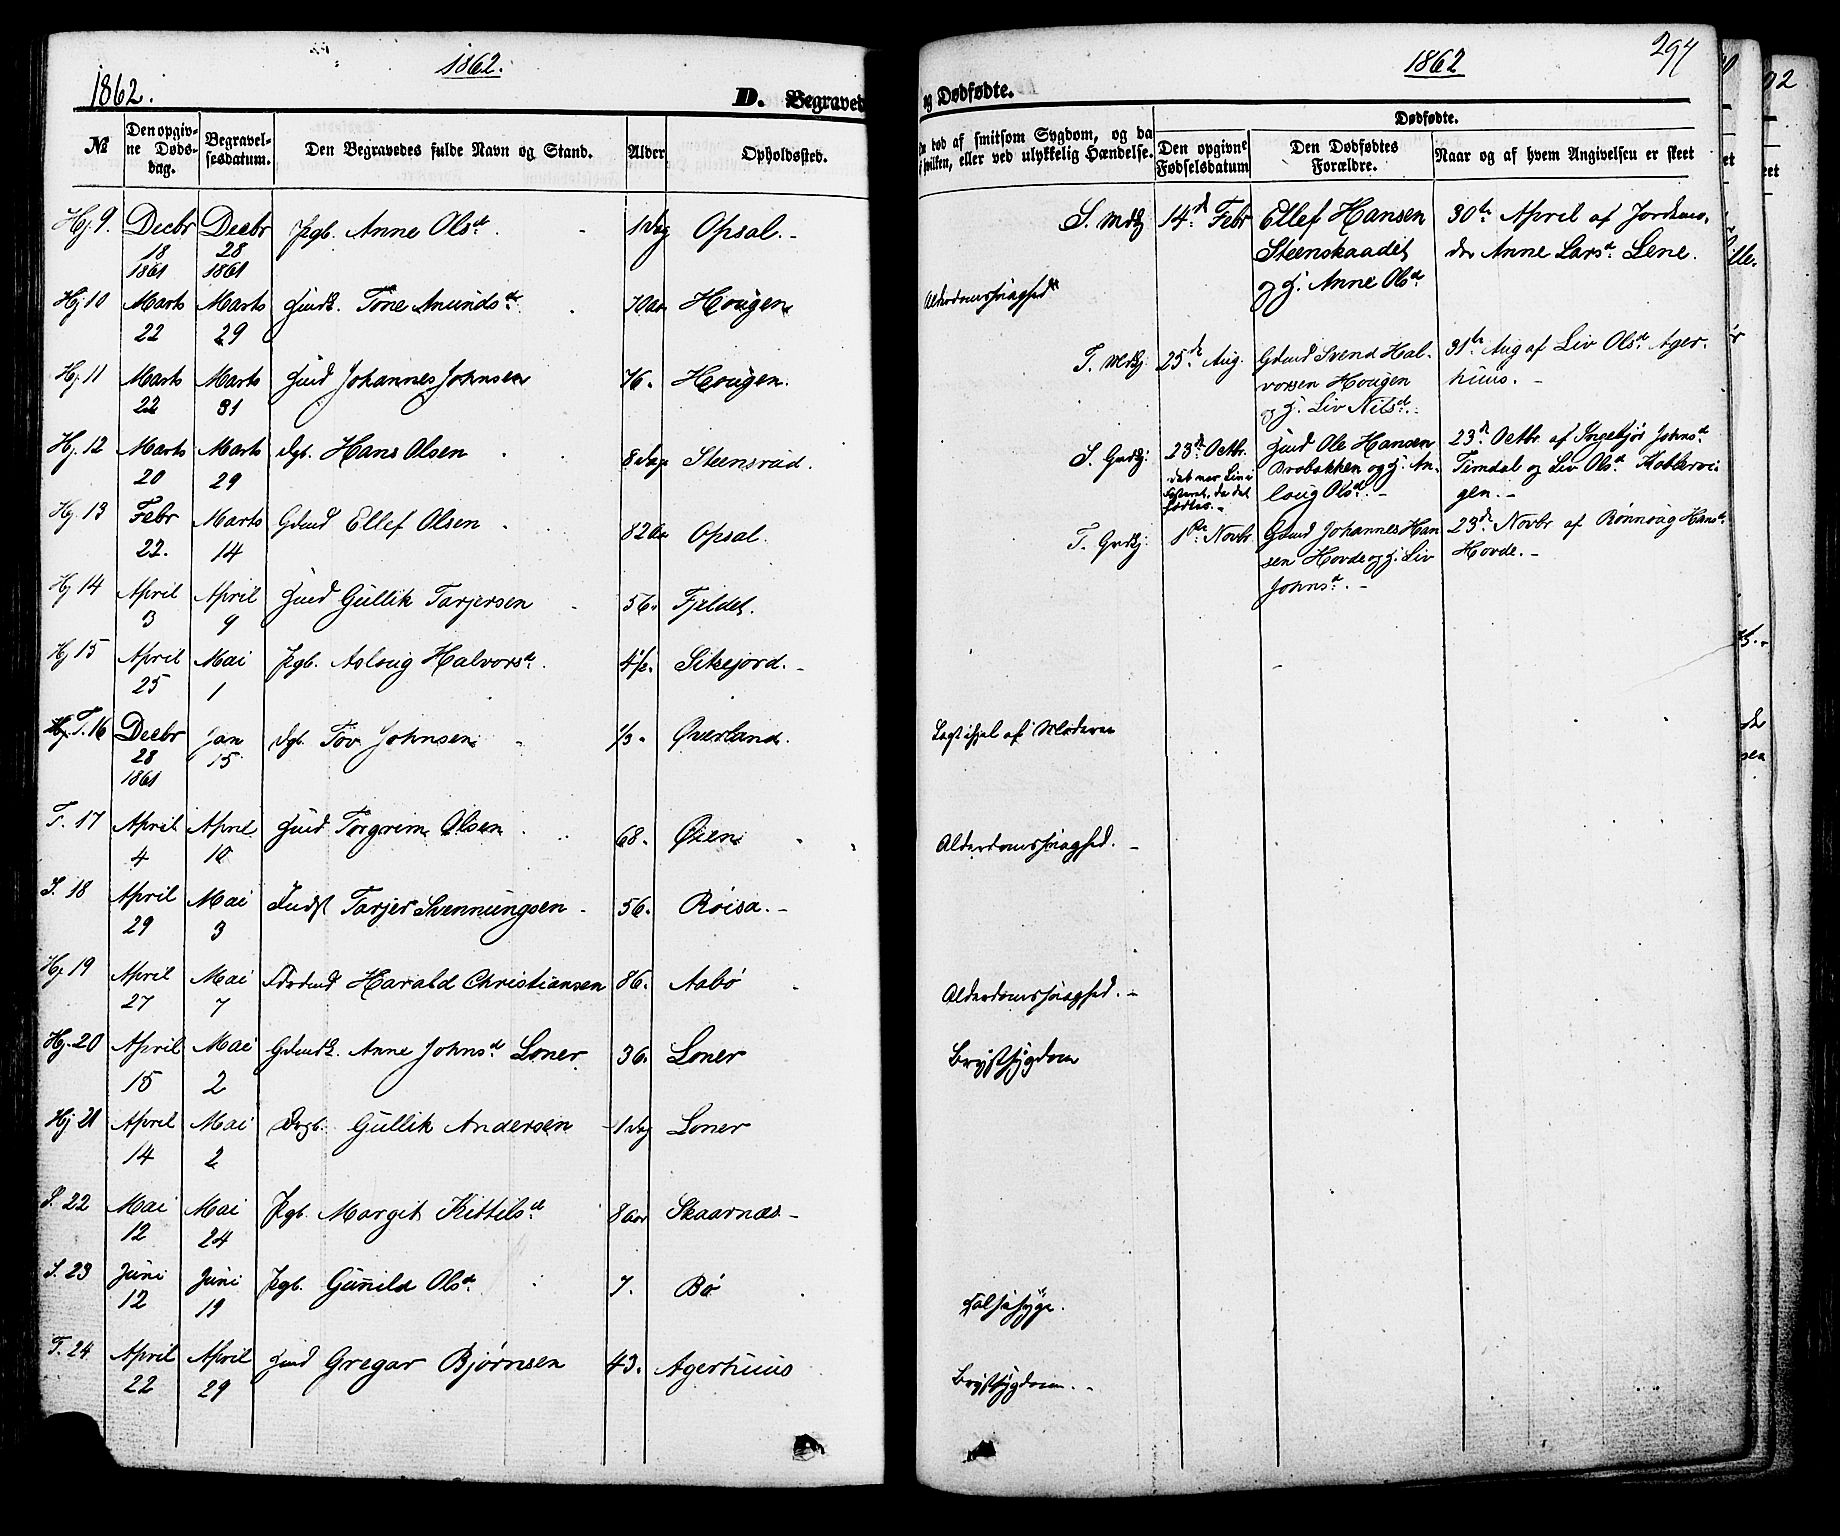 1862.
1862.
D. Begravede
№
Den opgiv-
ne Døds-
dag.
Begravel-
sesdatum.
Den Begravedes fulde Navn og Stand.
Alder
Opholdssted.
Hj. 9. Decbr 18 1861 Decbr 28 1861 Pgb. Anne Olsd. 1 Dag Opsal.
Hj 10 Marts 22 Marts 29 Tone Amundsd. 70 Aar Hougen
Hj. 11 Marts 22 Marts 31 Johannes Johnsen 76. Hougen.
Hj. 12 Marts 20 Marts 29 Dgb. Hans Olsen 8 Dage Steensrud.
Hj. 13 Febr 22. Marts 14 Gdmd Ellef Olsen 82 Aar Opsal.
Hj 14 April 3 April 9 Gullik Tarjersen 56. Fjeldet.
Hj 15 April 25 Mai 1 Pgb. Asloug Halvorsd. Sitejord.
T. 16 Decbr 28 1861 Jan 15 Dgb. Tov Johnsen 1/3. Øverland.
T. 17 April 4 April 10 Torgrim Olsen 68. Øien
S. 18 April 29 Mai 3 Inds. Tarjer Svennungsen 56. Roisa.
Hj. 19 April 27 Mai 7 Harald Christiansen 86. Aabö
Hj. 20 April 15 Mai 2 Anne Johnsd. Loner 36. Loner
Hj 21 April 14 Mai 2 Dgb. Gullik Andersen 1 Dag Loner
S. 22 Mai 12 Mai 24 Pgb. Margit Kittilsd. 8 Aar Skaarnæs
S. 23 Juni 12 Juni 19 Pgb. Gunild Olsd. 7. Bø
T. 24 April 22 April 29 Gregar Bjørnsen 43. Agerhuus
1862
294
og Dødfødte.
død af smitsom Sygdom, og da
hvilken, eller ved ulykkelig Hændelse.
Dødfødte.
Den opgivne
Fødselsdatum
Den Dødfødtes
Forældre.
Naar og af hvem Angivelsen er skeet
S. 14d Febr Ellef Hansen 30te April af Jordemo-
Steenskaadet der Anne Larsd. Lene.
og H. Anne Olsd
Alderdomssvaghed
T. 25de Aug. Gdmd Svend Hal- 31te Aug af Liv Olsd. Ager-
vorsen Hougen huus.
og H. Liv Nilsd.
S. 23de Octbr. Ole Hansen 23de Octbr. af Ingebjør Johnsd.
det var
Brobakken og H. As- Timdal og Liv Olsd.
da det loug Olsd. gen.
fødtes.
T. 1ste Novbr. Gdmd Johannes Han 23de Novbr af Rönnoug Hansd.
sen Hovde og H. Liv Hovde.
Johnsd.
Lagt ihjel af Moderen
Alderdomssvaghed.
Alderdomssvaghed.
Brystsygdom
Halssyge.
Brystsygdom.